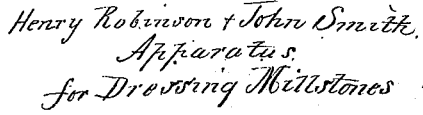 Henry Robinson & John Smith.
Apparatus.
for Dressing Millstones